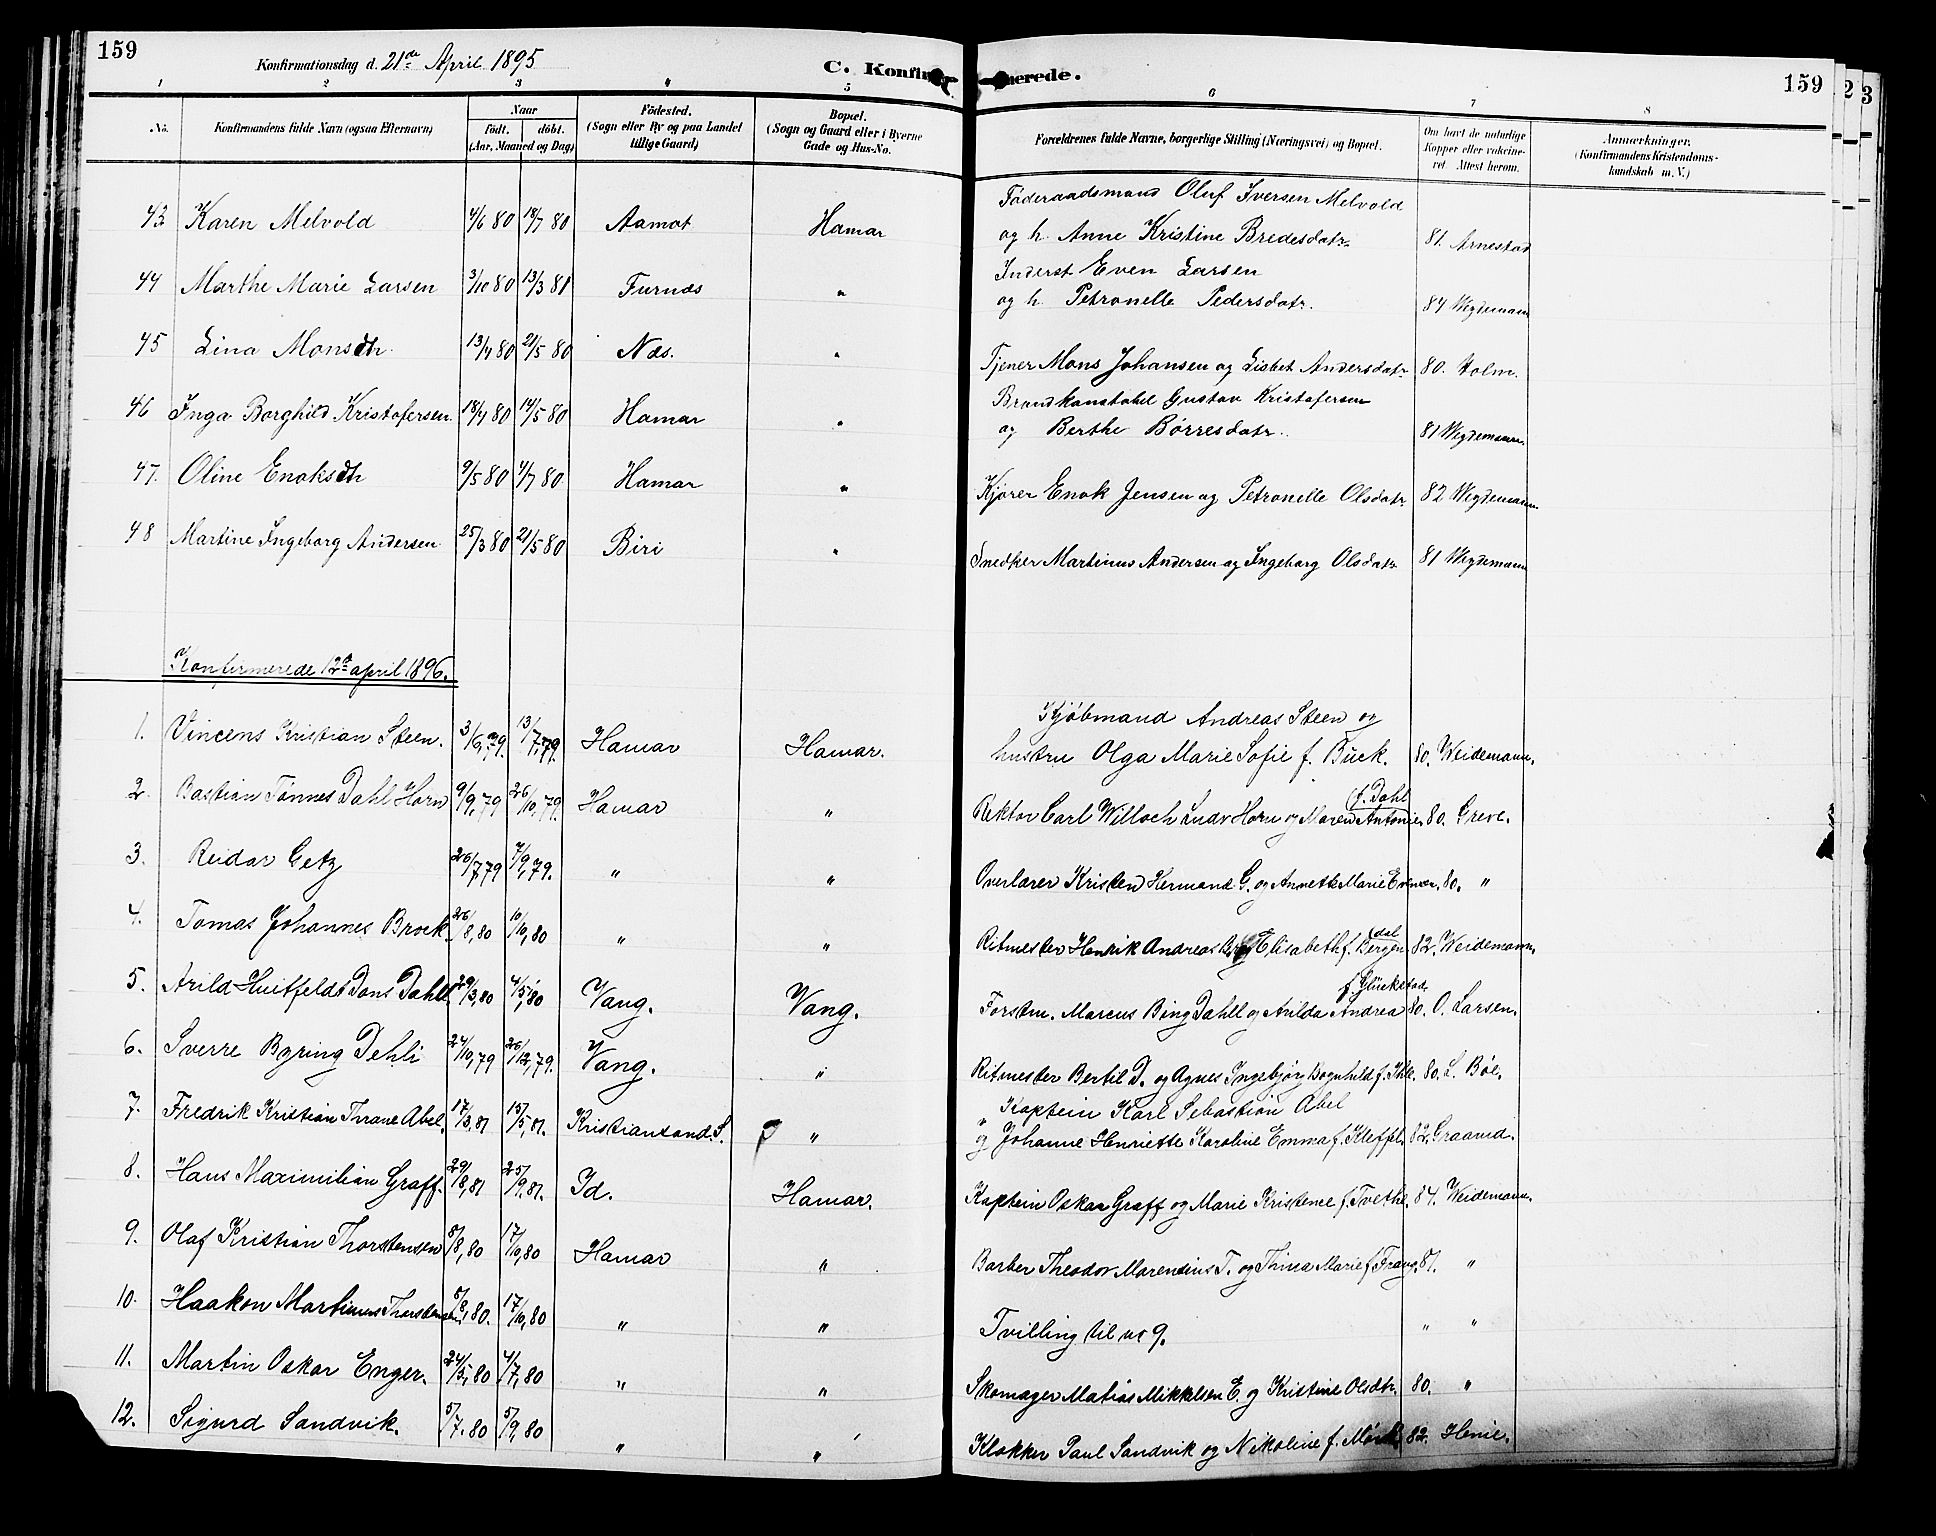 159
Konfirmationsdag d. 21de April 1895
C. Konfirmerede.
159
1 2 3 4 5 6 7 8
No.
Konfirmandens fulde Navn (ogsaa Efternavn)
Naar
födt. döbt.
(Aar, Maaned og Dag)
Födested.
(Sogn eller By og paa Landet
tillige Gaard)
Bopæl.
(Sogn og Gaard eller i Byerne
Gade og Hus-No.
Forældrenes fulde Navne, borgerlige Stilling (Næringsvei) og Bopæl.
Om havt de naturlige
Kopper eller vakcine-
ret Attest herom.
Anmærkninger.
(Konfirmandens Kristendoms-
kundskab m. V.)
Föderaadsmand Oluf Iversen Melvold
43 Karen Melvold 4/6 80 18/7 80 Aamot Hamar og h. Anne Kristine Bredesdatr. 81. Arnestad
Inderst Even Larsen
44 Marthe Marie Larsen 3/10 80 13/3 81 Furnæs " og h. Petronelle Pedersdatr. 84 Wegdemann
45 Lina Monsdtr. 13/4 80 21/5 80 Næs. " Tjener Mons Johansen og Lisbet Andersdatr. 80. Holm.
Brandkonstabel Gustav Kristofersen
46 Inga Borghild Kristofersen. 18/4 80 14/5 80 Hamar " og Berthe Børresdatr. 81 Wegdemann
47. Oline Enoksdtr 9/5 80 4/7 80 Hamar " Kjører Enok Jensen og Petronelle Olsdatr. 82 Wegdemann
48 Martine Ingeborg Andersen 25/3 80 21/5 80 Biri " Snedker Martinus Andersen og Ingeborg Olsdatr 81 Wegdemann
Konfirmerede 12te april 1896.
Kjøbmand Andreas Steen og
1. Vincens Kristian Steen. 3/6, 79. 13/7, 79. Hamar Hamar. hustru Olga Marie Sofie f. Bück. 80. Weidemann.
f. Dahl
2. Bastian Tønnes Dahl Horn 9/9, 79 26/10, 79. Hamar " Rektor Carl Willoch Ludv Horn og Maren Antonie 80. Greve.
3. Reidar Getz 26/7, 79 7/9, 79. " " Overlærer Kristen Hermand G. og Annette Marie 80. "
dal
4. Tomas Johannes Brock. 26/8, 80 10/10, 80 " " Ritmester Henrik Andreas og Elisabeth f. Bergen 82. Weidemann.
f. Glückstad
5. Arild Huitfeldt Dons Dahll 29/3, 80 4/5, 80 Vang. Vang. Forstm. Marcus Bing Dahll og Arilda Andrea 80. O. Larsen.
6. Sverre Byring Dehli 24/10, 79 26/12, 79. Vang. " Ritmester Bertil D. og Agnes Ingebjørg Bognhild f. Ihle. 80. L. Bøe.
" Kaptein Karl Sebastian Abel
7. Fredrik Kristian Thrane Abel. 17/3, 81 15/5, 81. Kristiansand S. " og Johanne Henriette Karoline Emma f. 82. Graarud.
8. Hans Maximilian Graff. 29/8, 81 25/9, 81. Id. Hamar. Kaptein Oskar Graff og Marie Kristene f. Tvethe. 84. Weidemann.
9. Olaf Kristian Thorstensen 5/8, 80 17/10, 80 Hamar " Barber Theodor Marensius T. og Thina Marie f. Frang. 81. "
10. Haakon Martinus Thorstensen 5/8, 80. 17/10, 80 " " Tvilling til nr 9. " "
11. Martin Oskar Enger. 24/5, 80 4/7, 80 " " Skomager Matias Mikkelsen E. og Kristine Olsdtr. 80. "
12. Sigurd Sandvik. 5/7. 80 5/9, 80 " " Klokker Paul Sandvik og Nikoline f. 82. Henie.